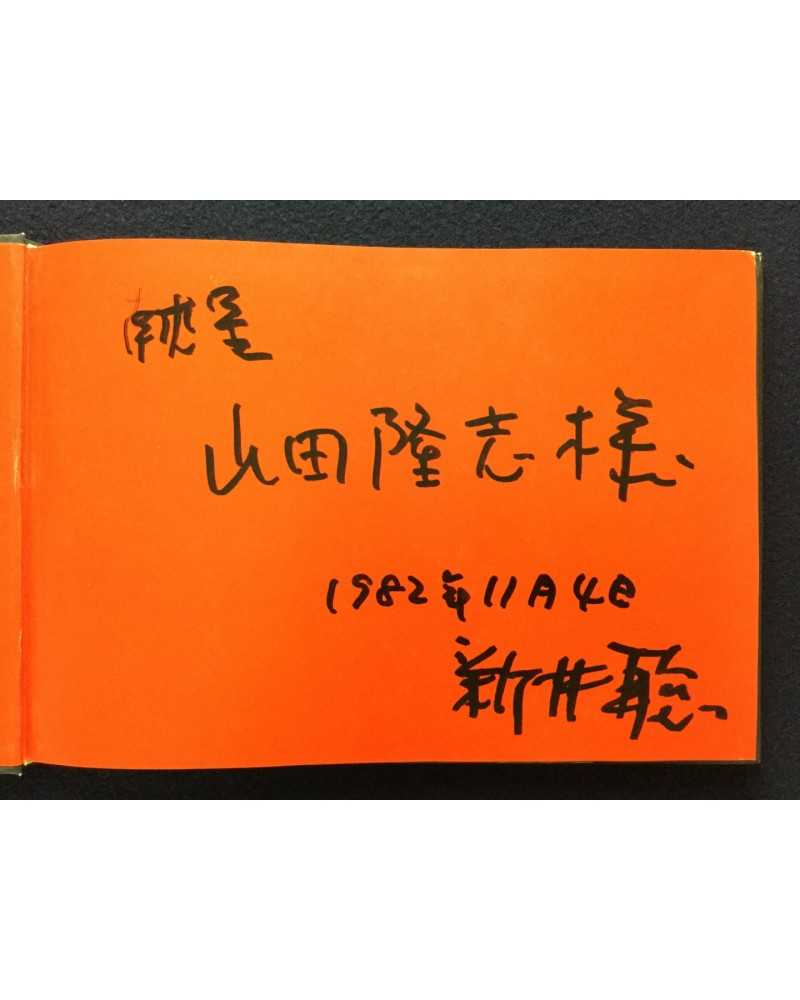 山田隆志様
1982年11月4日
新井聡